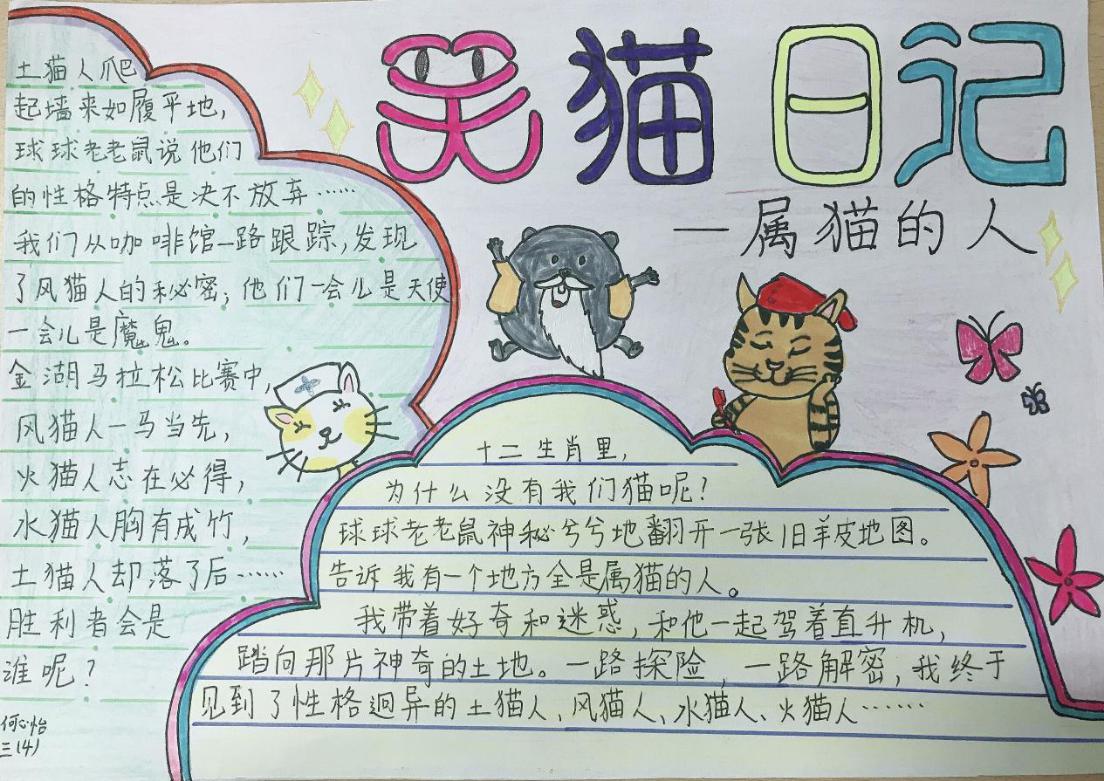 笑猫日记
—属猫的人
土猫人爬
起墙来如履平地，
球球老老鼠说他们
的性格特点是决不放弃……
我们从咖啡馆一路跟踪，发现
了风猫人的秘密；他们一会儿是天使
一会儿是魔鬼。
金湖马拉松比赛中，
风猫人一马当先，
火猫人志在必得，
水猫人胸有成竹，
土猫人却落了后……
胜利者会是
谁呢？
何心怡
三（4）
十二生肖里，
为什么没有我们猫呢？
球球老老鼠神秘兮兮地翻开一张旧羊皮地图。
告诉我有一个地方全是属猫的人。
我带着好奇和迷惑，和他一起驾着直升机，
踏向那片神奇的土地。一路探险，一路解密，我终于
见到了性格迥异的土猫人、风猫人、水猫人、火猫人……